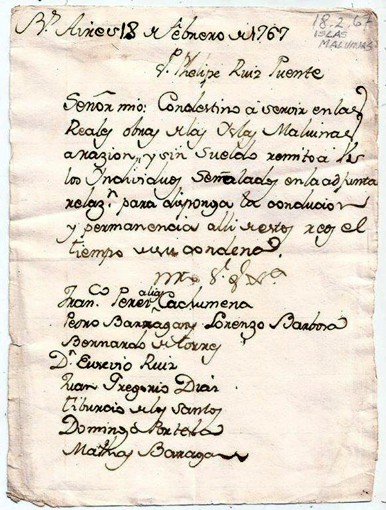 Bs Aires 18 de Febrero de 1767
18.2.67
ISLAS
MALVINAS
Sr. Phelipe Ruiz Puente
Señor mio: Con destino a servir en las
Reales obras de las Yslas Malvinas
a razion, y sin sueldo remito a
los Yndividuos señalados en la adjunta
relazn. para disponga la conducion
y permanencia alli de estos reos el
tiempo de su condena.
Franco. Perez alias Cachumena
Pedro Barragan, Lorenzo Barbosa
Bernardo de torres
Dn. Eusevio Ruiz
Juan Gregorio Diaz
tiburcio de los santos
Domingo Portela
Mathias Barragan